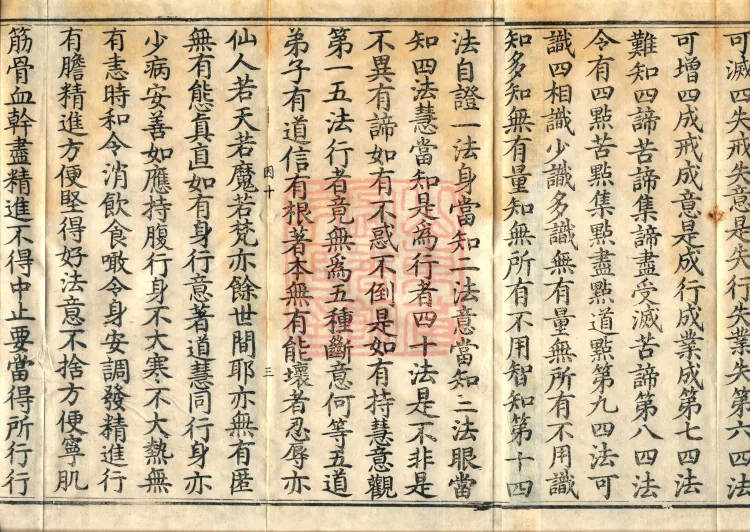 可滅四失戒失意是失行失業失第六四法
可增四成戒成意是成行成業成第七四法
難知四諦苦諦集諦盡受滅苦諦第八四法
令有四點苦點集點盡點道點第九四法可
識四相識少識多識無有量無所有不用識
知多知無有量知無所有不用智知第十四
法自證一法身當知二法意當知三法眼當
知四法慧當知是為行者四十法是不非是
不異有諦如有不惑不倒是如有持慧意觀
第一五法行者竟無為五種斷意何等五道
弟子有道信有根著本無有能壞者忍辱亦
因十 三
仙人若天若魔若梵亦餘世間耶亦無有匿
無有態真直如有身行意著道慧同行身亦
少病安善如應持腹行身不大寒不大熱無
有恚時和令消飲食噉令身安調發精進行
有膽精進方便堅得好法意不捨方便寧肌
筋骨血幹盡精進不得中止要當得所行行